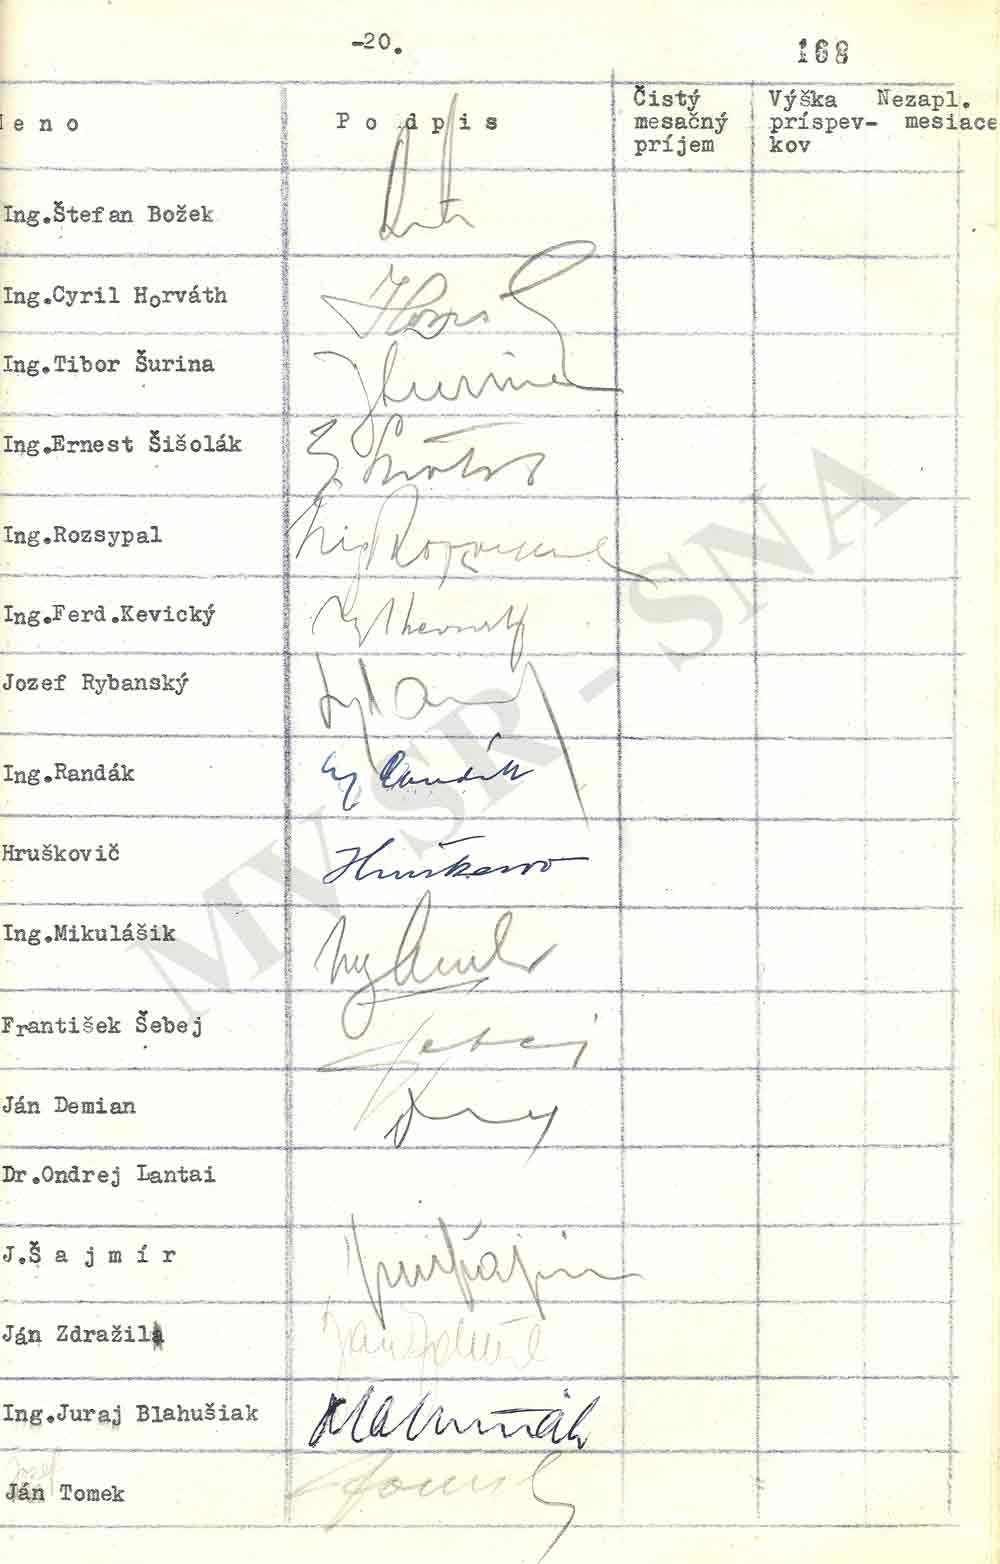 -20.
168
Meno
Podpis
Čistý mesačný príjem
Výška príspev- kov
Nezapl. mesiace
Ing.Štefan Božek
Ing.Cyril Horváth
Ing.Tibor Šurina
Ing.Ernest Šišolák
Ing.Rozsypal
Ing.Ferd.Kevický
Jozef Rybanský
Ing.Randák
Hruškovič
Ing.Mikulášik
František Šebej
Šebej
Ján Demian
Dr.Ondrej Lantai
J.Šajmír
Ján Zdražil
Ing.Juraj Blahušiak
Jozef
Ján Tomek
MV SR - SNA